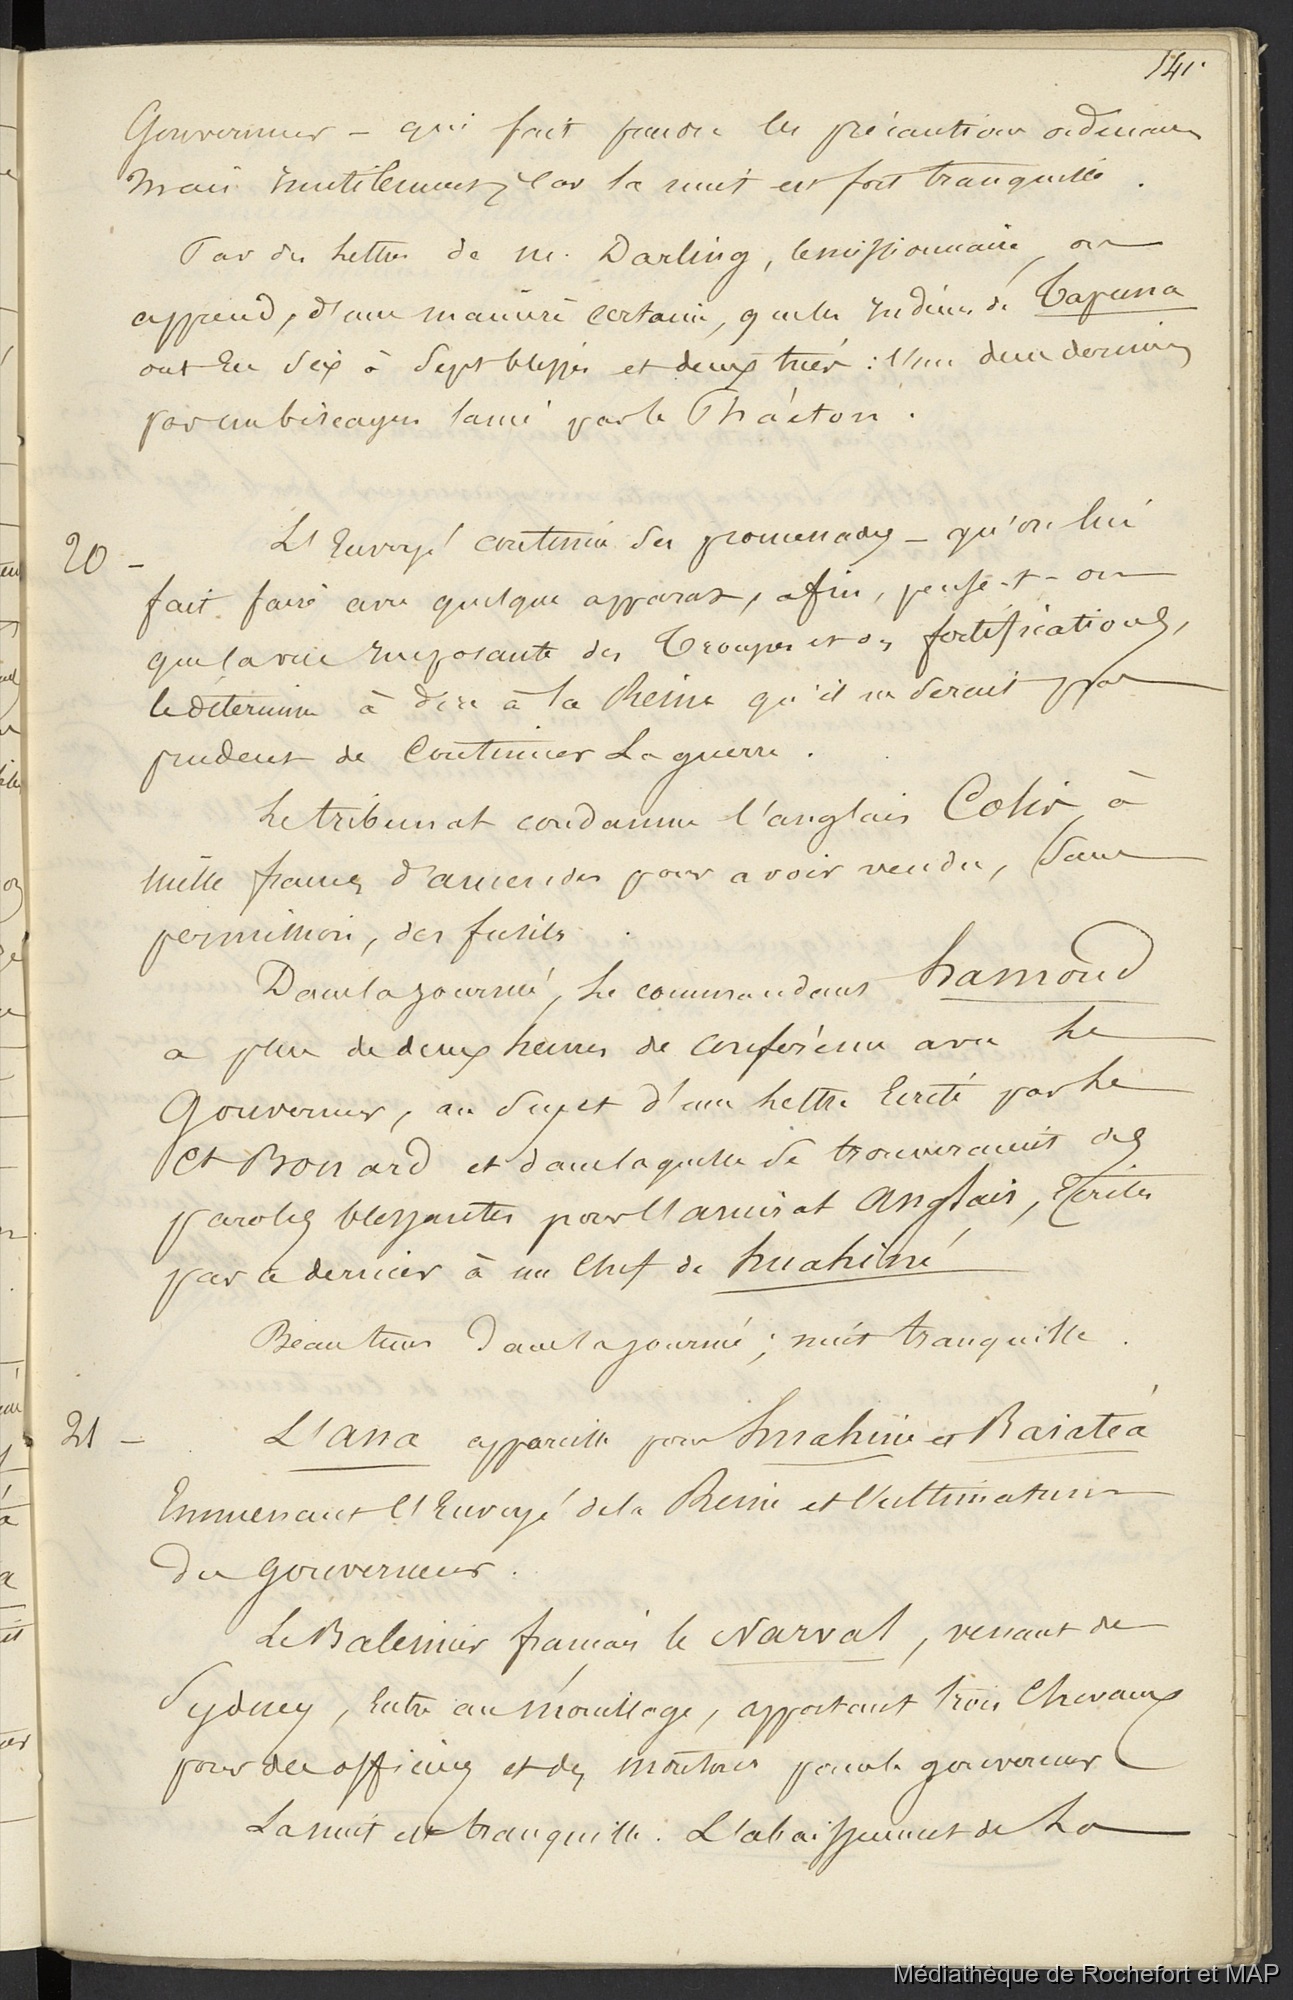 141.
Gouverneur – qui fait prendre les précautions ordinaires
mais inutilement ; car la nuit est fort tranquille .
Par des lettres de M. Darling, le missionnaire, on
apprend, d'une manière certaine, que les Indiens de Tapuna
ont eu six à sept blessés et deux tués : l'un de ces derniers
par un biscayen lancé par le Phaéton .
20 – L'Envoyé continue ses promenades – qu'on lui
fait faire avec quelque apparat, afin, pense-t-on
que la vue imposante des Troupes et des fortifications,
le détermine à dire à la Reine qu'il ne serait pas
prudent de continuer la guerre .
Le tribunal condamne l'anglais à
mille francs d'amendes pour avoir vendu, sans
permission, des fusils .
Dans la journée, le commandant hamond
a plus de deux heures de conférence avec le
Gouverneur, au sujet d'une lettre écrite par le
Ct Bonard et dans laquelle se trouveraient des
paroles blessantes pour l'amiral anglais, écrites
par ce dernier à un chef de huahiné
Beau tems dans la journée ; nuit tranquille .
21 – L'ana appareille pour huahine et Raiatéa
Emmenant l'Envoyé de la Reine et l'ultimatum
du gouverneur .
Le Baleinier français le Narval, venant de
Sydney, entre au mouillage, apportant trois chevaux
pour des officiers et des moutons pour le gouverneur
La nuit est tranquille . L'abaissement de la
Médiathèque de Rochefort et MAP